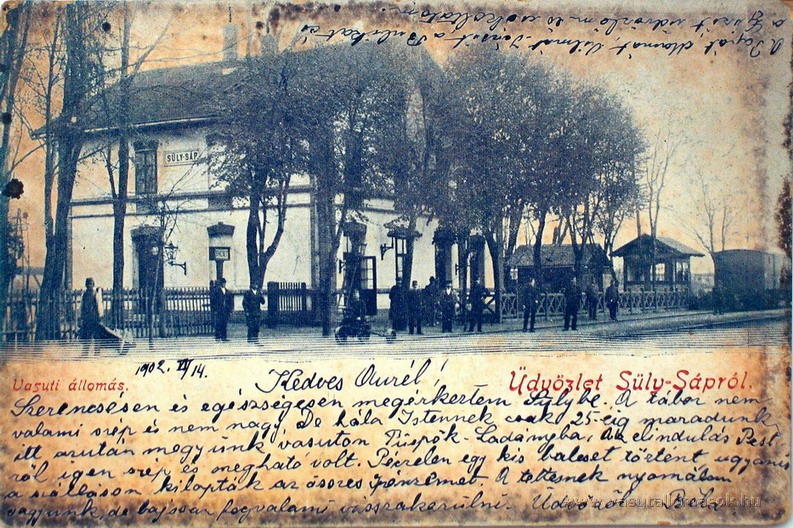 A Papát, Mamát, Vilmát, Józsit a Bulikat és
a Gizit üdvözlöm és csókolom.
SÜLY-SÁP
Vasuti állomás.
1902. VI/14.
Kedves Aurél!
Üdvözlet Süly-Sápról.
Szerencsésen és egészségesen megérkeztem Sülybe. A tábor nem
valami szép és nem nagy. De hála Istennek csak 25-éig maradunk
itt azután megyünk vasuton Püspök-Ladányba. Az elindulás Pest
ről igen szép és megható volt. Péczelen egy kis baleset történt ugyanis
a szálláson kilopták az összes pénzemet. A tettesnek nyomában
vagyunk, de bajosan fog valami visszakerülni. Üdvözöl Béla
www.vasutallomasok.hu